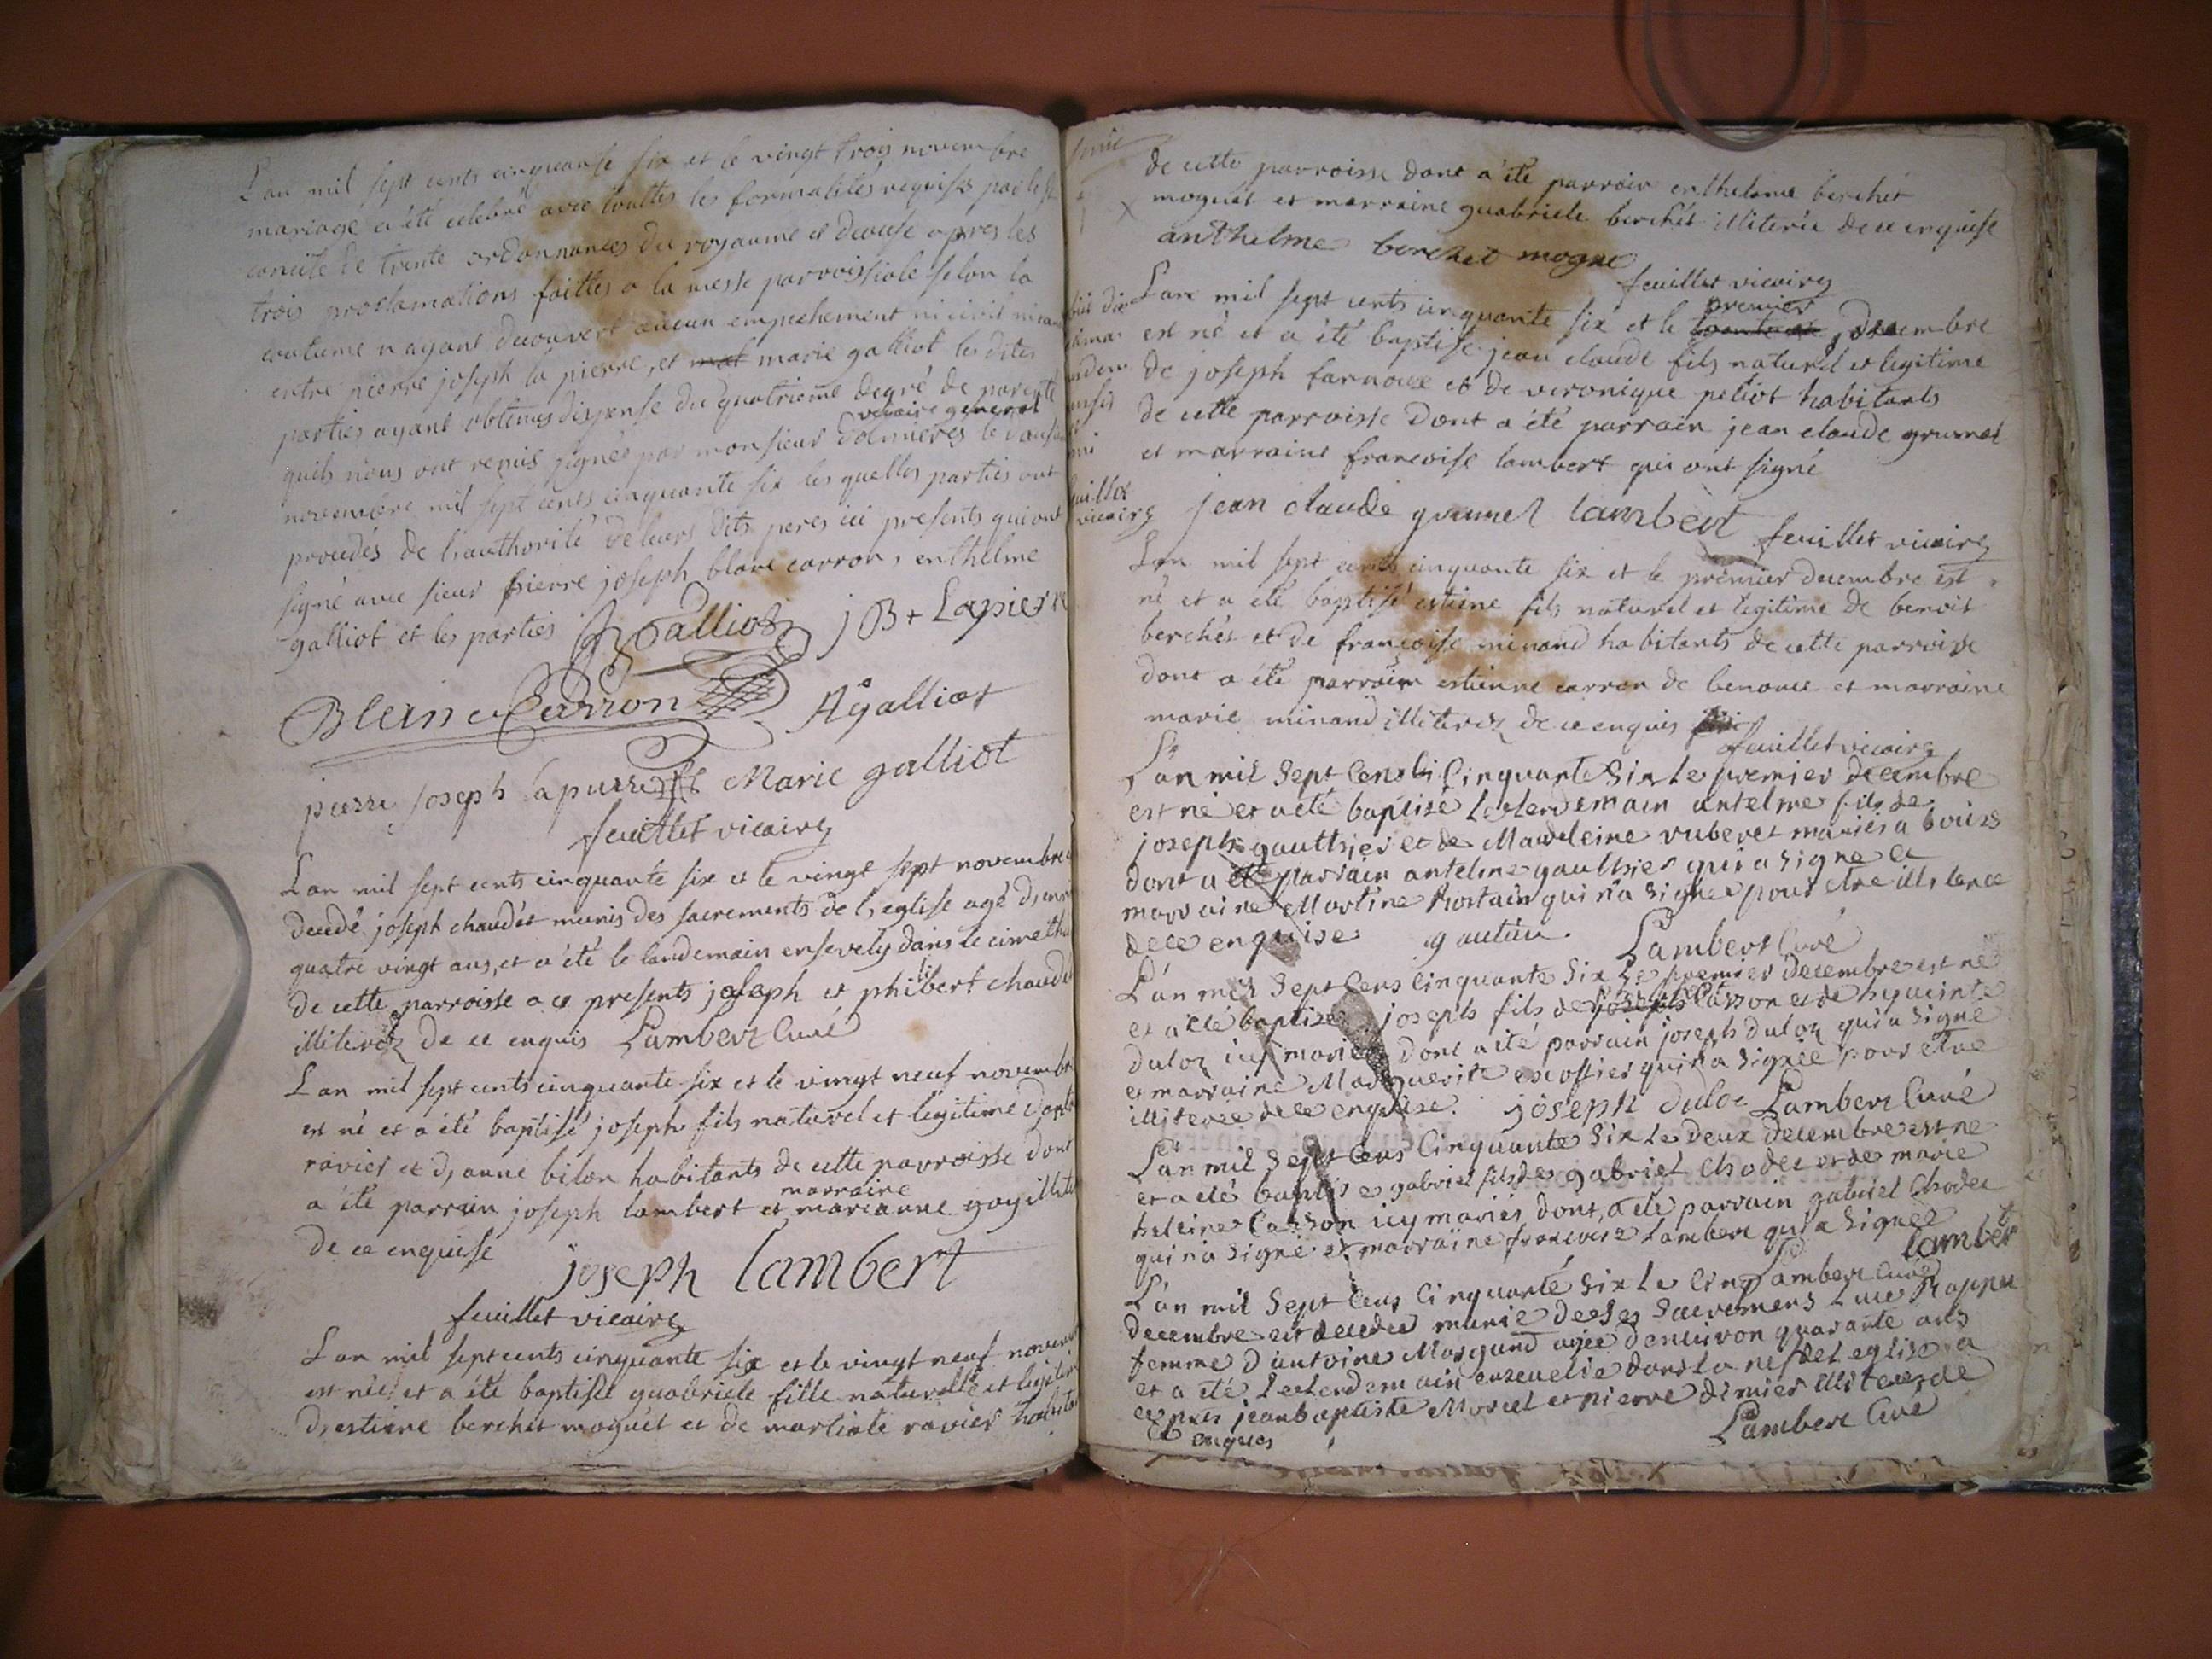 L'an mil sept cents cinquante six et le vingt trois novembre
mariage a été celebré avec touttes les formalités requises par le st
concile de trente ordonnances du royaume et diocese apres les
trois proclamations faittes a la messe parroissiale selon la
coutume n'ayant decouvert aucun empechement ni civil ni can
entre pierre joseph la pierre, et marie galliot les dites
parties ayant obtenus dispense du quatrieme degré de parenté
vicaire general
quils nous ont remis signée par monsieur le
novembre mil sept cents cinquante six les quelles parties ont
procedés de l'authorité de leurs dits peres ici presents qui ont
signé avec sieur pierre joseph blanc carron, enthelme
galliot et les parties Galliot j B + Lapierre
Blanc Carron A galliot
pierre joseph lapierre Marie galliot
feuillet vicaire
L'an mil sept cents cinquante six et le vingt sept novembre
decedé joseph chaudet munis des sacrements de l'eglise agé d'env
quatre vingt ans, et a été le landemain ensevely dans le cimeth
de cette parroisse a ce presents joseph et philibert chaude
illiterez de ce enquis Lambert Curé
L'an mil sept cents cinquante six et le vingt neuf novemb
est né et a été baptisé joseph fils naturel et legitime d'
ravier et d'anne bilon habitants de cette parroisse dont
marraine
a été parrain joseph lambert et marianne goy illit
de ce enquise
joseph lambert
feuillet vicaire
L'an mil sept cents cinquante six et le vingt neuf novem
est née et a été baptisée guabriele fille naturelle et legitim
d'estiene berchet moguét et de martiale ravier habitan
de cette parroisse dont a été parrain enthelme berchet
moguét et marraine guabriele berchét illiterée de ce enquise
anthelme berchet mogue
feuillet vicaire
premier
L'an mil sept cents cinquante six et le decembre
est né et a été baptisé jean claude fils naturel et legitime
de joseph farnoux et de veronique petiot habitants
de cette parroisse dont a été parrain jean claude grumel
et marraine francoise lambert qui ont signé
jean claude grumel lambert feuillet vicaire
L'an mil sept cents cinquante six et le premier decembre est
né et a été baptisé estiene fils naturel et legitime de benoit
berchét et de françoise minand habitants de cette parroisse
dont a été parrain estienne carron de benonce et marraine
marie minand illiterez de ce enquis
feuillet vicaire
L'an mil sept Cens Cinquante six Le premier decembre
est né et a eté baptisé Le lendemain antelme fils de
joseph gauthier et de Madeleine ruberet mariés a
dont a eté parrain antelme gaulthier qui a signe et
marraine Martine Rostain qui n'a signée pour etre
de ce enquise gautier. Lambert Curé
L'an mil Sept Cens Cinquante Six Le premier decembre est né
et a eté baptisé joseph fils de Carron et de hyacinte
duloz icy mariés dont a été parrain joseph duloz qui a signe
et marraine Marguerite escoffier qui n'a signée pour etre
illiterée de ce enquise. joseph duloc Lambert Curé
L'an mil Sept Cens Cinquante Six Le deux decembre est né
et a eté baptisé gabriel fils de gabriel Chodet et de marie
heleine Carron icy mariés dont a eté parrain gabriel Chodet
qui n'a Signe et marraine francoise Lambert qui a Signée
lambert
Lambert Curé
L'an mil Sept Cens Cinquante Six Le Cinq
decembre est decedée munie de Ses Sacremens Luce
femme d'antoine agée d'environ quarante ans
et a été Le lendemain ensevelie dans La nef de L eglise a
ce pres jean baptiste Morel et pierre dimier illiteres de
ce enquis Lambert Curé